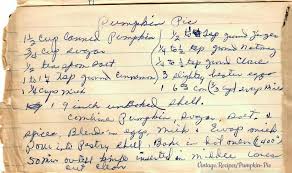 Pumpkin Pie
1½ cup Canned Pumpkin
¾ cup sugar
½ teaspoon salt
1 to 1¼ tsp ground cinnamon
1 ¼ cup milk
½ to 1 tsp ground Ginger
¼ to ½ tsp ground Nutmeg
¼ to ½ tsp ground Cloves
3 slightly beaten eggs
1 6 oz can (⅔ cup) evap Milk
1 9 inch unbaked shell.
Combine Pumpkin, Sugar, Salt, &
spices, Blend in eggs milk & Evap milk
Pour into Pastry shell, Bake in hot oven (400°)
50 min or til knife inserted in middle comes
out clean
Vintage.Recipes/Pumpkin-Pie